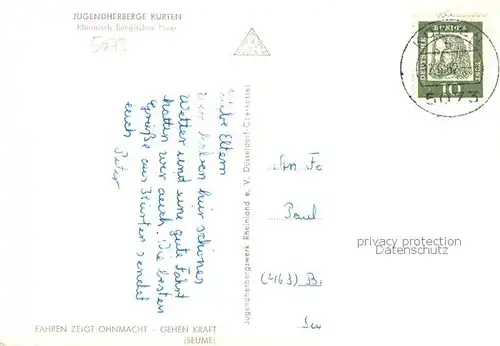 JUGENDHERBERGE KÜRTEN
Rheinisch Bergischer Kreis
5073
DEUTSCHE BUNDESPOST
10
5073
Liebe Eltern
Wir haben hir schönes
Wetter und eine gute Fahrt
hatten wir auch. Die besten
Grüße aus Kürten sendet
euch Peter
Jugendherbergswerk Rheinland e. V. Düsseldorf-Oberkassel
An Fa
Paul
(463) B
privacy protection
Datenschutz
FAHREN ZEIGT OHNMACHT – GEHEN KRAFT
(SEUME)